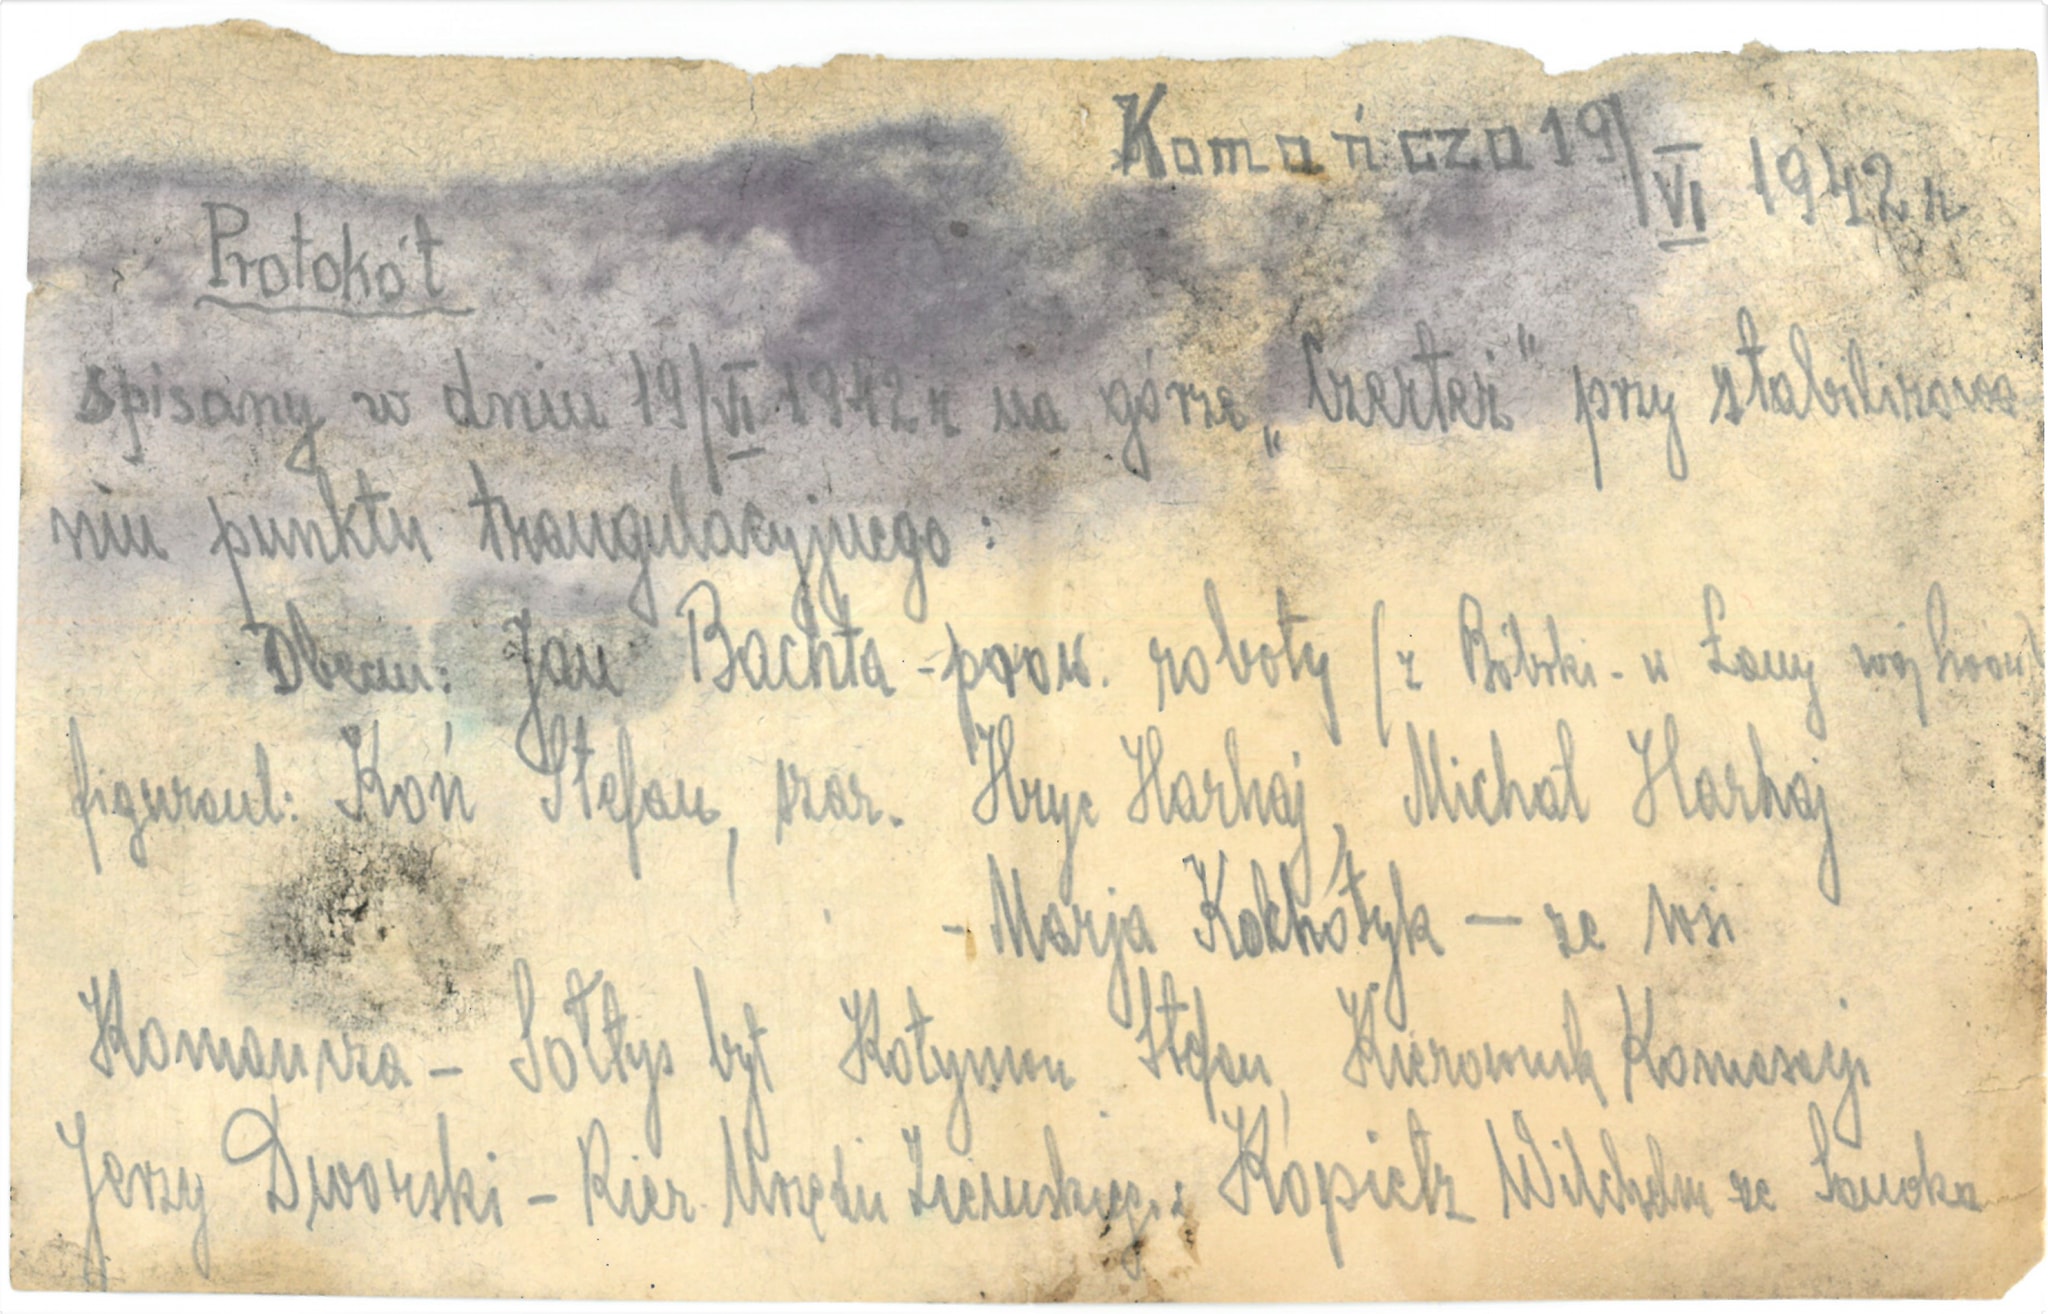 Komańcza 19/VI 1942 r
Protokół
spisany w dniu 19/VI 1942 r na górze „Czerteż" przy stabilizowa
niu punktu trangulacyjnego:
Obecni: Jan Bachta - prow. roboty (z Bóbrki - u Łamy woj Lwów)
figurant: Koń Stefan, szar. Hryc Harhaj, Michał Harhaj
- Marja Kochótyk — ze wsi
Komancza - Sołtys był Kotyman Stefan, Kierownik Komasacji
Jerzy Dworski - Kier. Urzędu Ziemskiego: Kópietz Wilchelm ze Sanoka